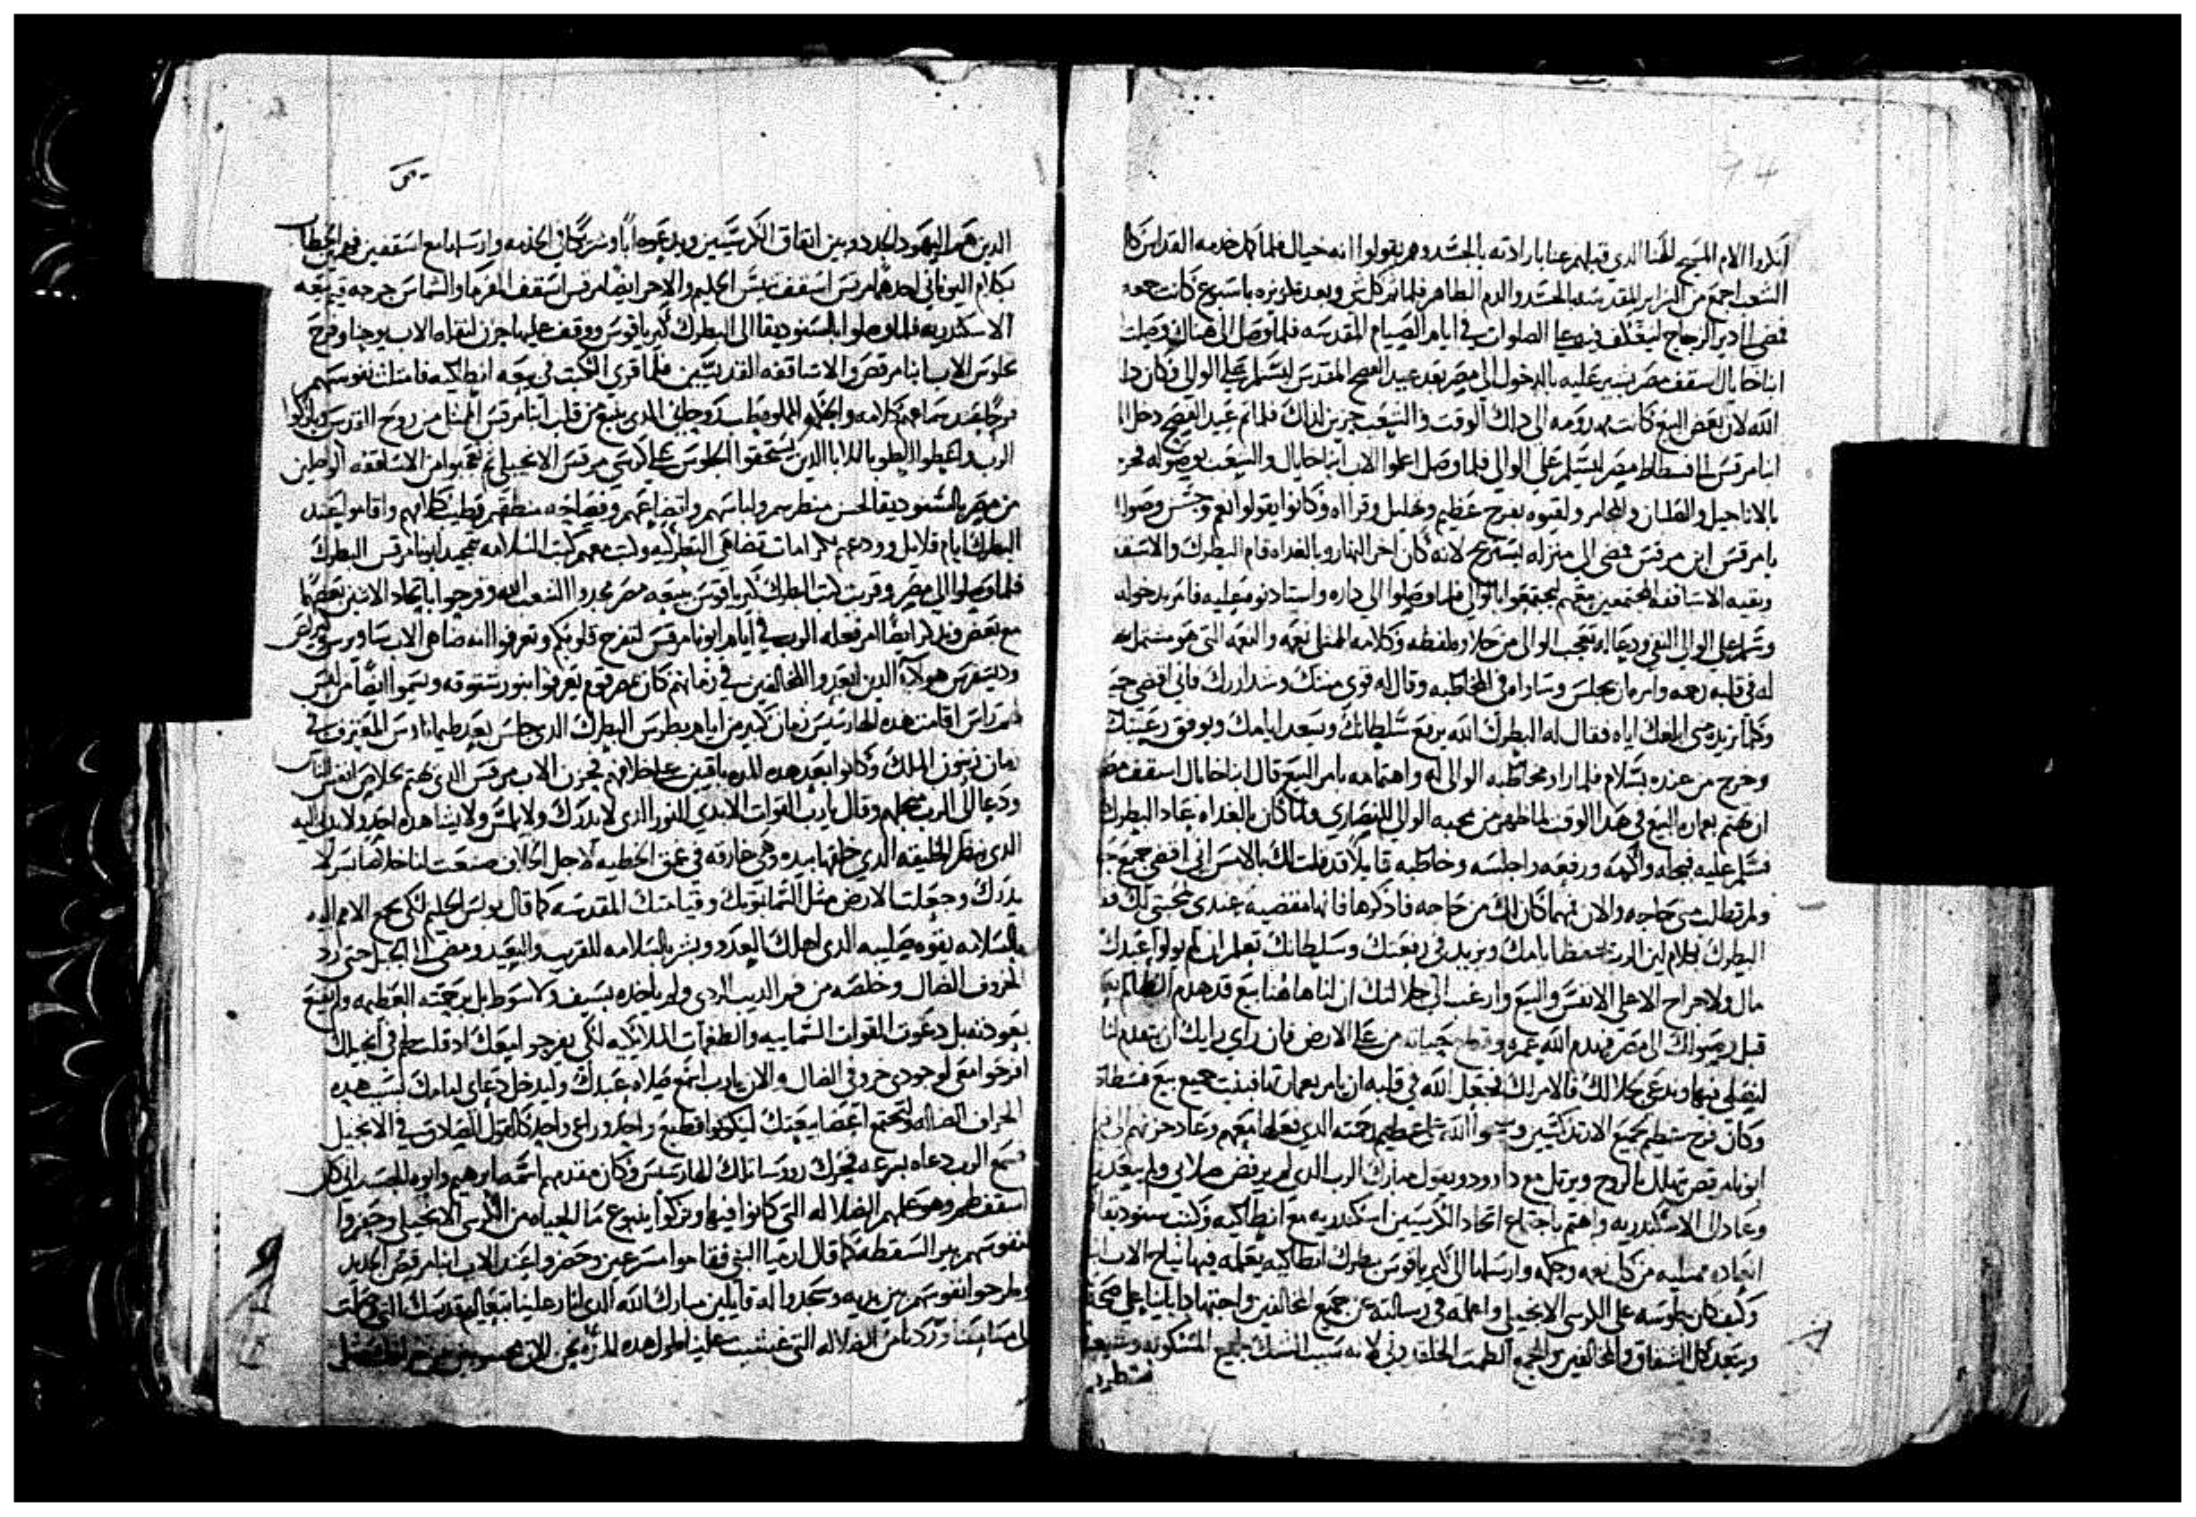 74
انكروا الام المسيح الهنا الدى قبلهم عنا بارادته بالجسد وهم يقولوا انه خيال فلما كمل خدمه القداس
الشعب اجمع من السراير المقدسه الجسد والدم الطاهر فلما تم كل شى وبعد باسبوع كانت جمعه
فمضى الى دير الزجاج ليعتكف فيه على الصلوات فى ايام الصيام المقدسه فلما وصل الى هناك وصلت
انبا خايال اسقف مصر يشير عليه بالدخول الى مصر بعد عيد الفصح المقدس ليسلم على الوالى وكان
الله لان بعض البيع كانت مهدومه الى دلك الوقت والشعب حزين لداك فلما تم عيد الفصح دخل
انبا مرقس الى فسطاط مصر ليسلم على الوالى فلما وصل اعلموا الاب انبا خايال والشعب بوصوله
بالاناجيل والصلبان والمجامر ولقيوه بفرح عظيم وتهليل وقراه وكانوا يقولوا نعم وحسن وصول
يا مرقس ابن مرقس فمضى الى منزله ليستريح لانه كان اخر النهار وبالغداه قام البطرك والاسقف
وبقيه الاساقفه المجتمعين معهم ليجتمعوا بالوالى فلما وصلوا الى داره واستادنوا عليه فامر بدخوله
وسلم على الوالى ودعا له فتعجب الوالى من حلاوه لفظه وكلامه الممتلى نعمه والنعمه التى هو مشتمل
له فى قلبه رحمه وامر ان يجلس وساواه فى المخاطبه وقال له قوى منتك وشد ازرك فانى اقضى
وكلما تريده منى ابلغك اياه فقال له البطرك الله يرفع سلطانك ويسعد ايامك ويوفق رعيتك
وخرج من عنده بسلام فلما راد مخاطبه الوالى له واهتمامه بامر البيع قال انبا خايال اسقف مصر
ان يهتم بعماره البيع فى هدا الوقت لما ظهر من محبه الوالى للنصارى ولما كان بالغداه عاد البطرك
فسلم عليه فبجله واكرمه ورفعه واجلسه وخاطبه قايلا قد قلت لك بالامس انى اقضى جميع
ولم تطلب منى حاجه والان فمهما كان لك من حاجه فادكرها فانها مقضيه عندى لمحبتى لك
البطرك بكلام لين الرب يحفظ ايامك ويزيد فى رفعتك وسلطانك تعلم ان لم يولوا عبدك
مال ولا خراج الا على الانفس والبيع وارغب الى جلالتك ان لنا هاهنا بيع قد هدم الظالم
قبل وصولك الى مصر فهدم الله عمره وقطع حياته من على الارض فان راى رايك ان يتقدم لنا
لنصلى فيها وندعى لجلالك فالامر لك فجعل الله فى قلبه ان يامر بعمارتها فبنيت جميع بيع فسطاط
وكان فرح عظيم لجميع الارتدكسيين وسبحوا الله على عظيم رحمته الدى فعلها معهم وعاد حزنهم الى
ابونا مرقص يتهلل بالروح ويرتل مع داوود ويقول مبارك الرب الدى لم يرفض صلاتى ولم يبعد
وعاد الى الاسكندريه واهتم باجتماع اتحاد الكرسيين اسكندريه مع انطاكيه وكتب سنوديقا
اتحاده ممتليه من كل نعمه وحكمه وارسلها الى كيرياقوس بطرك انطاكيه يعلمه فيها بنياح الاب
وكيف كان جلوسه على الكرسى الانجيلى واعلمه فى رسالته عن جميع المخالفين واجتهادا بلينا على
ويبعد كل الشقاق والمخالفين والمجمع الطمث الخلقدونى لانه سبب الشك لجميع المسكونه وشيعه
نسطور
الدين هم اليهود الجدد وبين اتفاق الكرسيين ويدعوه ابا وشريكا فى الخدمه وارسلها مع اسقفين
بكلام اليونانى احدهما مرقس اسقف تنيس الحليم والاخر ايضا مرقس اسقف الفرما والشماس جرجه قيم بيعه
الاسكندريه فلما وصلوا بالسنوديقا الى البطرك كيرياقوس ووقف عليها حزن لنقله الاب يوحنا وفرح
بجلوس الاب انبا مرقص والاساقفه القديسين فلما قرى الكتب فى بيعه انطاكيه فامتلت نفوسهم
فرحا عند سماعهم كلامه والحكمه المملوه الدى ينبع من قلب انبا مرقس الممتلى من روح القدس وباركوا
الرب واعطوا الطوبا للابا الدين يستحقوا الجلوس على كرسى مرقس الانجيلى ثم تعجبوا من الاساقفه الواصلين
من مصر بالسنوديقا لحسن منظرهم ولباسهم واتضاعهم وفصاحه منطقهم وطيب كلامهم واقاموا عند
البطرك ايام قلايل وودعهم بكرامات تضاهى البطركيه وكتب معهم كتب السلامه تمجيد لابونا مرقس البطرك
فلما وصلوا الى مصر وقريت كتب البطرك كيرياقوس ببيعه مصر مجدوا الشعب الله وفرحوا باتحاد الاثنين بعضهما
مع بعض وندكر ايضا امر فعله الرب فى ايام ابونا مرقس لتفرح قلوبكم وتعرفوا انه ضاهى الاب ساويرس
وديسقرس هولاء الدين ابعدوا المخالفين فى زمانهم كان بمصر قوم يعرفوا ببنوا رستوقه وسموا ايضا من ليس
لهم راس اقامت هذه الهارسيس زمان كبير من ايام بطرس البطرك الدى جلس بعد طيماتاوس المعترف فى
زمان زينون الملك وكانوا بعد هذه المده باقيين على خلافهم فحزن الاب مرقس الدى يهتم بخلاص انفس الناس
ودعا الى الرب بسببهم وقال يارب القوات الابدى النور الدى لا يدرك ولا يلمس ولا يشاهده احد ولا يدنى اليه
الدى نظر الخليقه الدى خلقها بيده وهى غارقه فى عمق الخطيه لاجل صنعت لنا خلاصا بسر لا
يدرك وجعلت الارض مثل السما بقوتك وقيامتك المقدسه كما قال بولس الحكيم لكى يجمع الامم اليه
بالسلامه بقوه صليبه الدى اهلك العدو وبشر بالسلامه للقريب والبعيد ومضى الى الجبل حتى رد
الخروف الضال وخلصه من فم الديب الردى ولم ياخده بسيف ولا سوط بل برحمته العظيمه ولم يقنع
بعوده بل دعوت القوات السماييه والطغمات الملايكيه لكى يفرحوا معك اد قلت لهم فى انجيلك
افرحوا معى لوجودى خروفى الضال والان يارب اسمع صلاه عبدك وليدخل دعاى امامك بسبب هده
الخراف الضاله لتجمع اعضا بيعتك ليكونوا قطيع واحد وراعى واحد كالقول الصادق فى الانجيل
فسمع الرب دعاه بسرعه فحرك رووسا تلك الهارسيس وكان مقدمهم اسمه ابرهيم وابوه بالجسد
اسقفهم وهو علمهم الضلاله التى كانوا فيها وتركوا ينبوع ما الحياه من الكرسى الانجيلى وحفروا
لنفوسهم بير السقطه كما قال ارميا النبى فقاموا مسرعين وحضروا عند الاب انبا مرقص الجديد
وطرحوا نفوسهم بين يديه وسجدوا له قايلين مبارك الله الدى انار علينا بتعاليم قدسك التى دخلت
الى مسامعنا وردنا من الضلاله التى غشيت علينا طول هده المده نحن الان